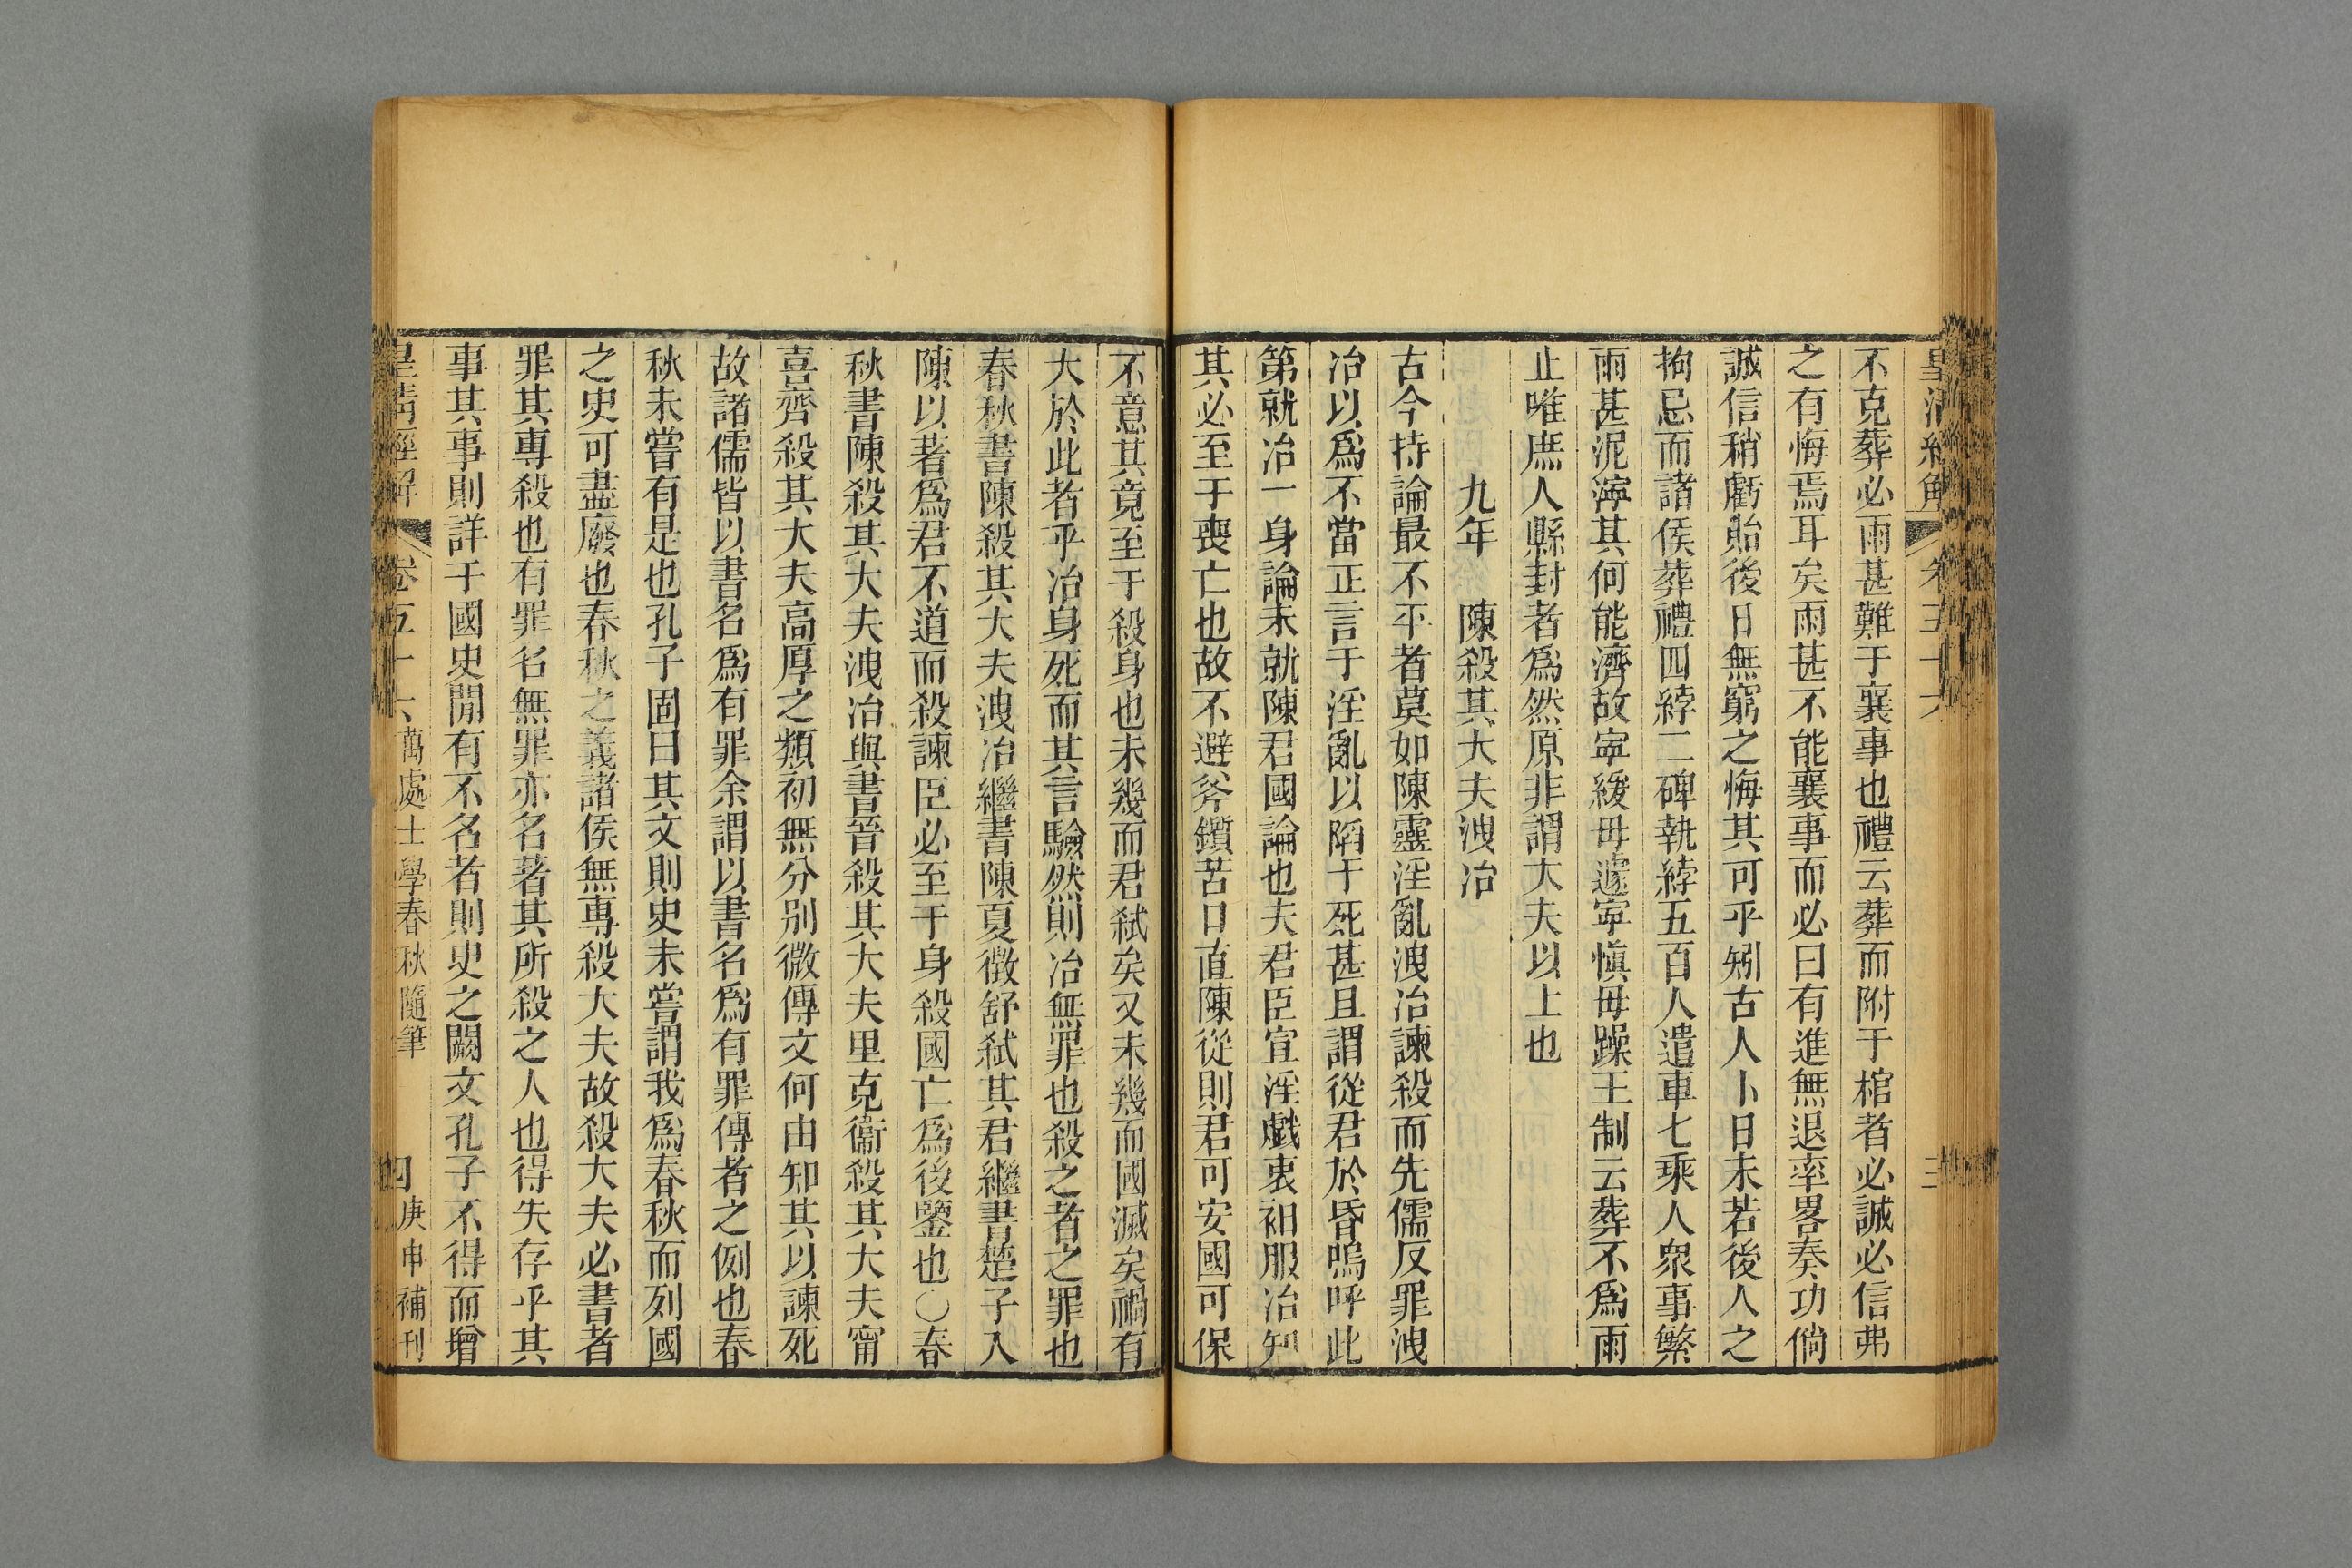 皇清經解 卷五十六 三
不克葬必雨甚難于襄事也禮云葬而附于棺者必誠必信弗
之有悔焉耳矣雨甚不能襄事而必曰有進無退率畧奏功倘
誠信稍虧貽後日無窮之悔其可乎矧古人卜日未若後人之
拘忌而諸侯葬禮四綍二碑執綍五百人遣車七乘人衆事繁
雨甚泥濘其何能濟故寜緩毋遽寜愼毋躁王制云葬不爲雨
止唯庶人縣封者爲然原非謂大夫以上也
九年 陳殺其大夫洩冶
古今持論最不平者莫如陳靈淫亂洩冶諫殺而先儒反罪洩
冶以爲不當正言于淫亂以陷于死甚且謂從君於昏嗚呼此
第就冶一身論未就陳君國論也夫君臣宣淫戲衷衵服冶知
其必至于喪亡也故不避斧鑕苦口直陳從則君可安國可保
不意其竟至于殺身也未幾而君弑矣又未幾而國滅矣禍有
大於此者乎冶身死而其言驗然則冶無罪也殺之者之罪也
春秋書陳殺其大夫洩冶繼書陳夏徵舒弑其君繼書楚子入
陳以著爲君不道而殺諫臣必至于身殺國亡爲後鑒也〇春
秋書陳殺其大夫洩冶與書晉殺其大夫里克衞殺其大夫甯
喜齊殺其大夫高厚之類初無分别微傳文何由知其以諫死
故諸儒皆以書名爲有罪余謂以書名爲有罪傳者之例也春
秋未嘗有是也孔子固曰其文則史未嘗謂我爲春秋而列國
之史可盡廢也春秋之義諸侯無專殺大夫故殺大夫必書者
罪其專殺也有罪名無罪亦名著其所殺之人也得失存乎其
事其事則詳于國史閒有不名者則史之闕文孔子不得而增
皇清經解 卷五十六 萬處士學春秋隨筆 四 庚申補刊